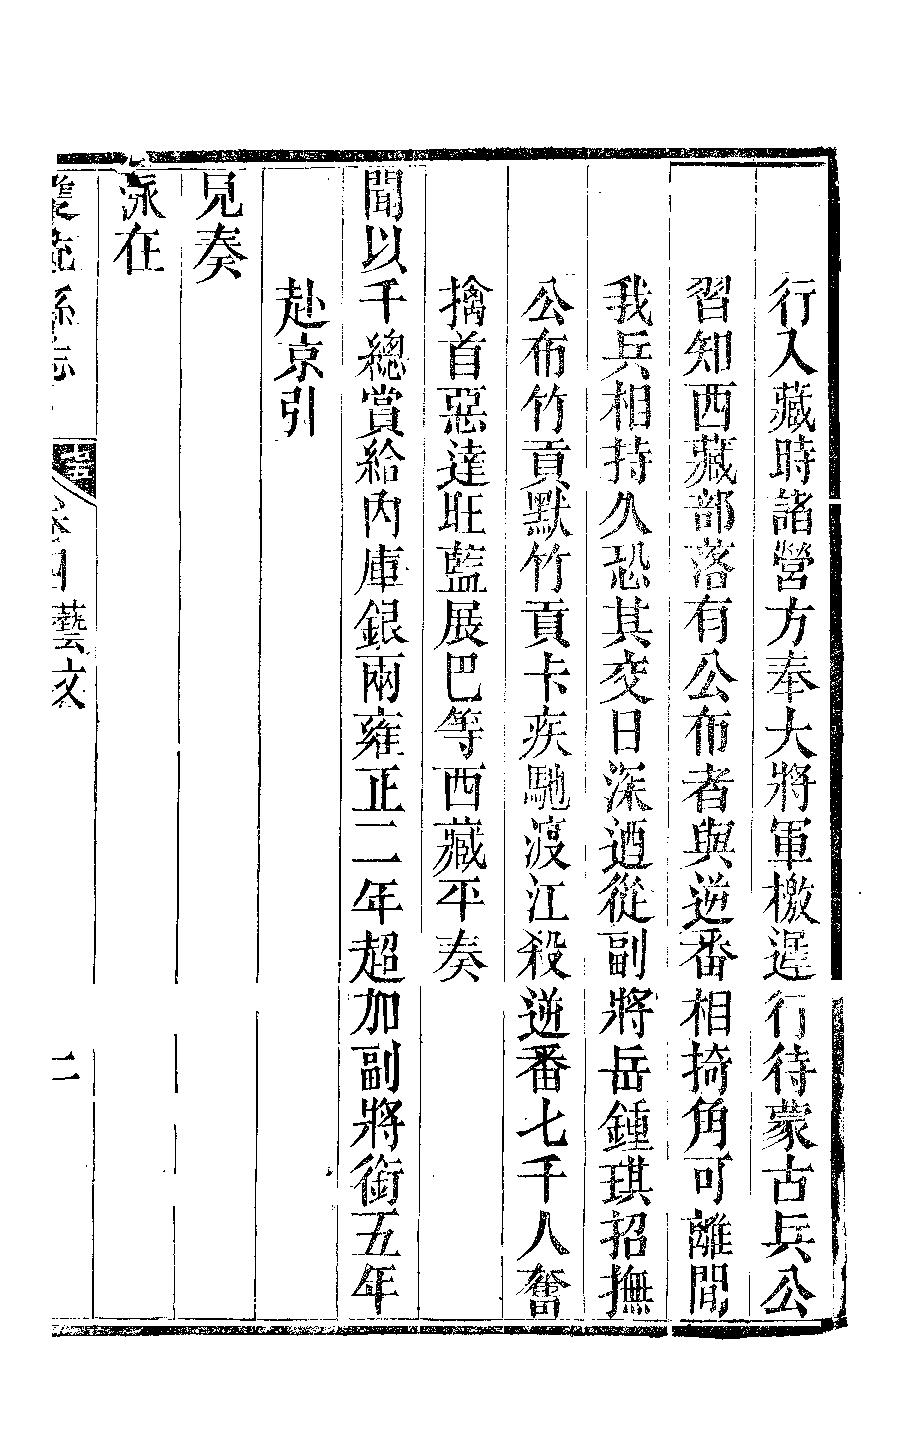 行入藏時諸營方奉大將軍檄遲行待蒙古兵公
習知西藏部落有公布者與逆番相掎角可離間
我兵相持久恐其交日深遒從副將岳鍾琪招撫
公布竹貢默竹貢卡疾馳渡江殺逆番七千人奮
擒首惡達旺藍展巴等西藏平奏
聞以千總賞給內庫銀兩雍正二年超加副將銜五年
赴京引
見奏
泳在
雙流縣志 卷四 藝文 二